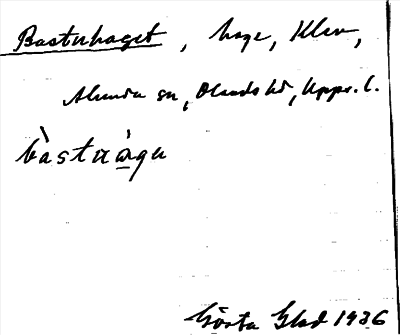 Basturhaget, hage, Klev,
Alunda sn, Olands hd, Upps. l.
bàstuàgu
Gösta Glad 1936